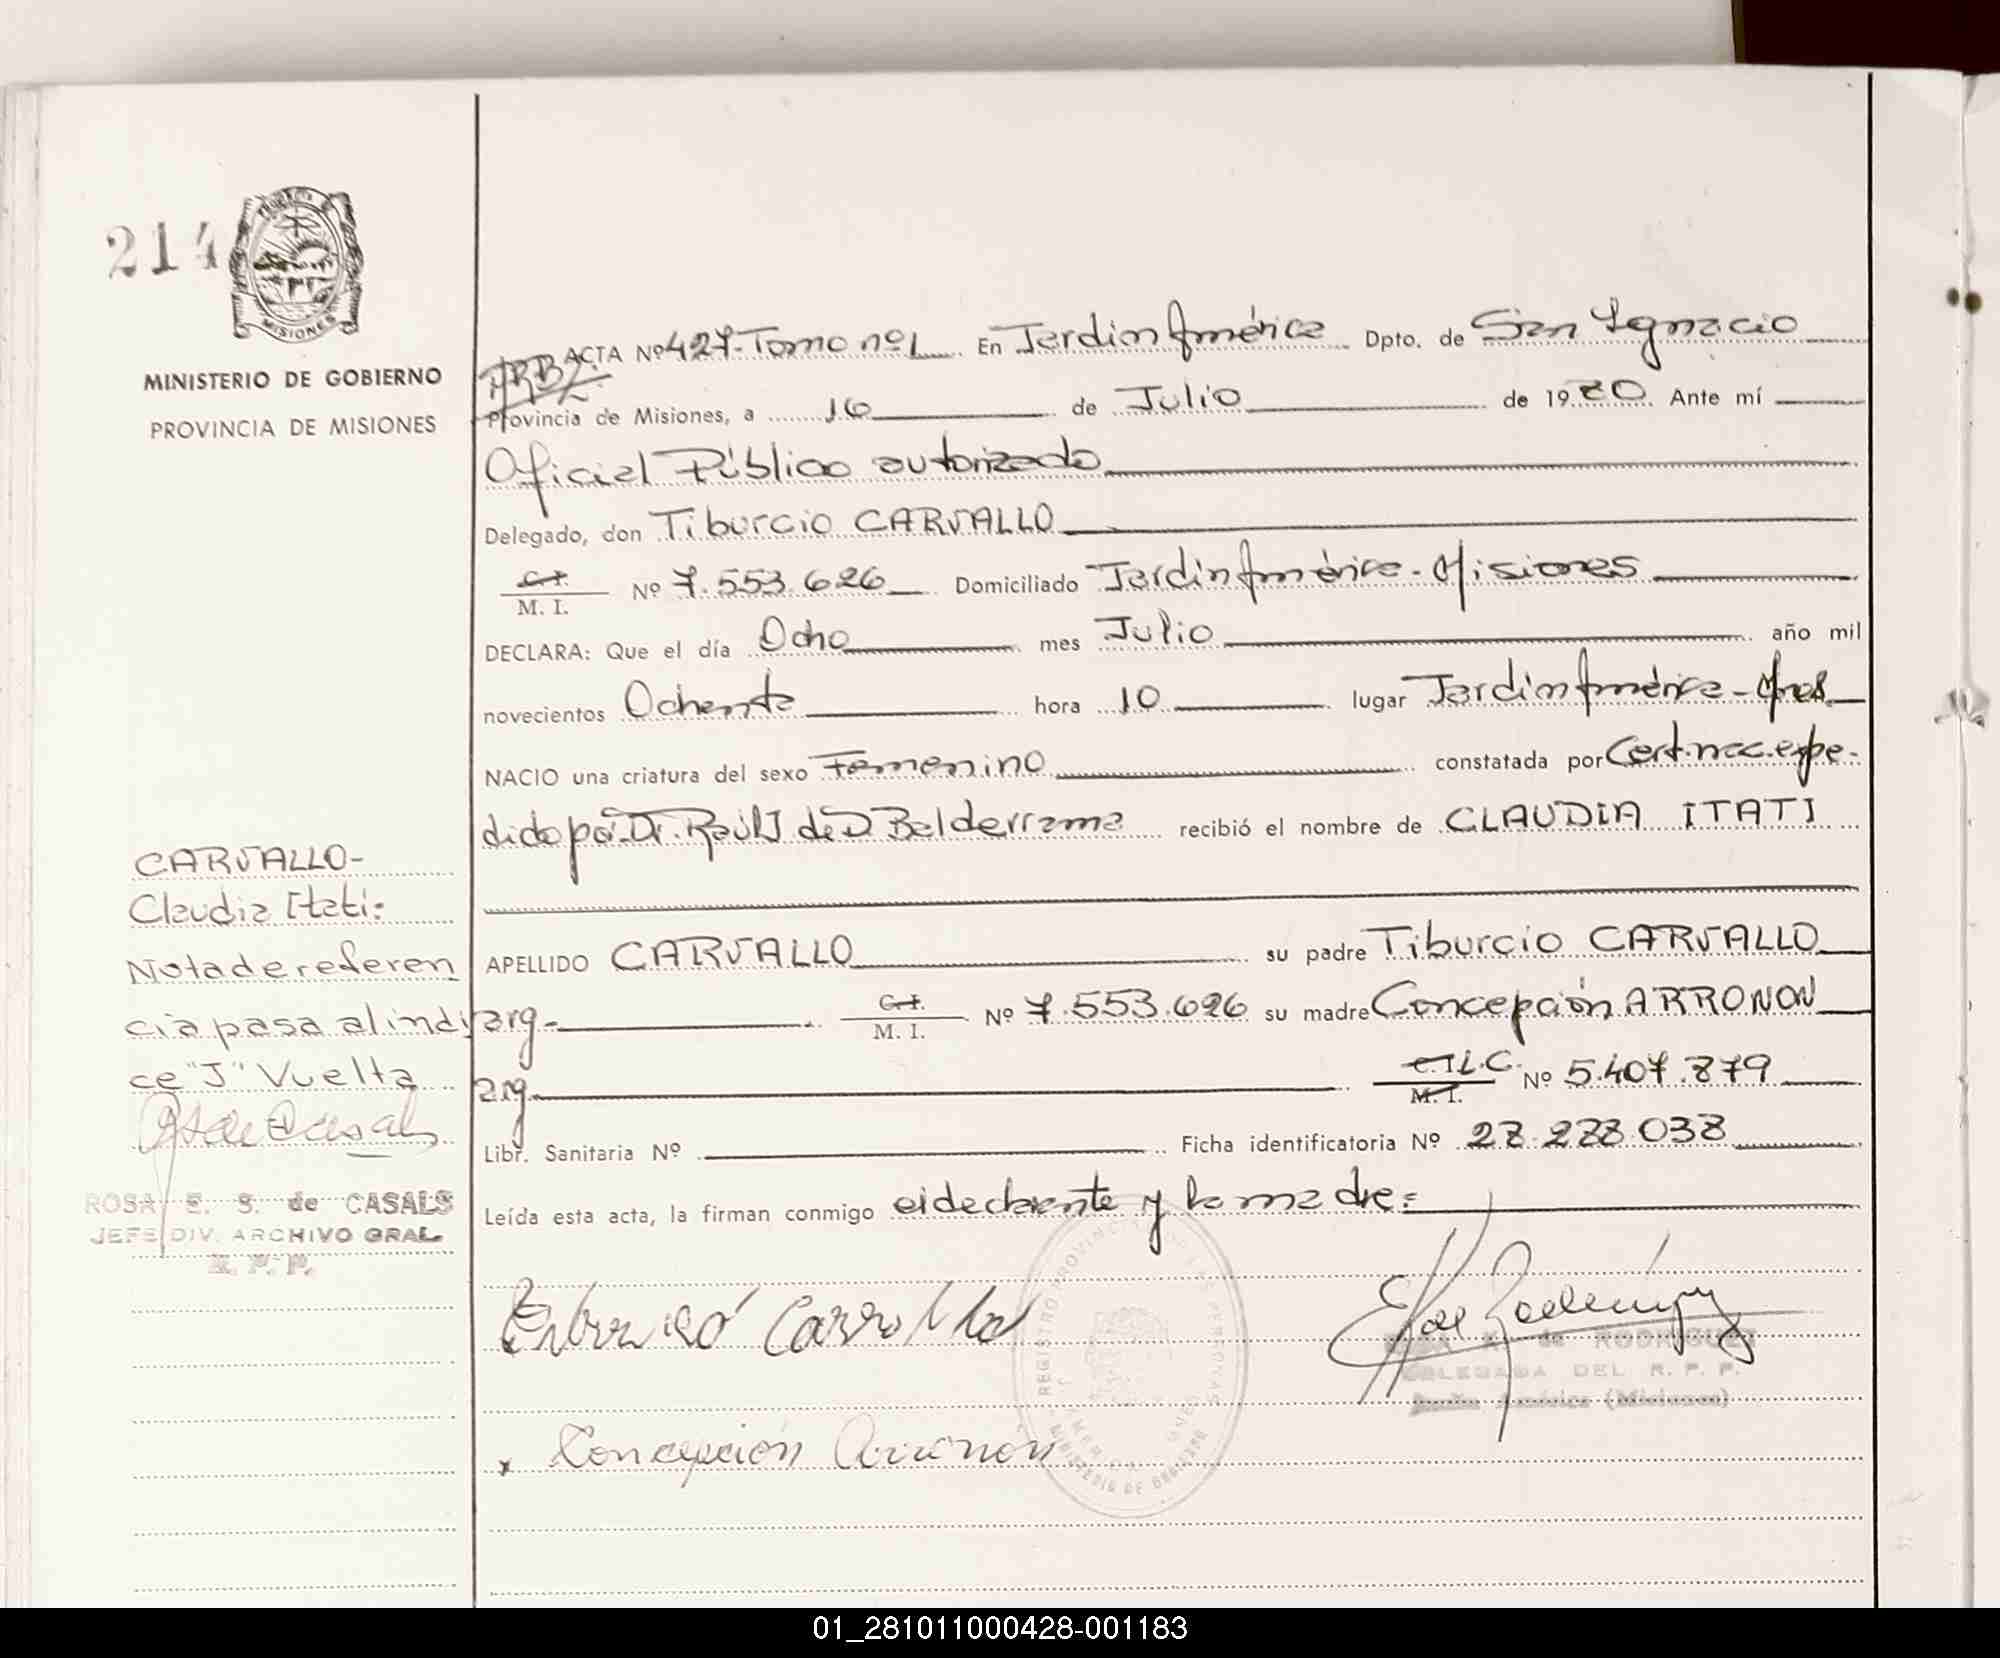 214
MISIONES
MINISTERIO DE GOBIERNO
PROVINCIA DE MISIONES
ACTA Nº 427-Tomo nº1 En Jardin América Dpto. de San Ignacio
Provincia de Misiones, a 16 de Julio de 1980. Ante mí
Oficial Público autorizado
Delegado, don Tiburcio CARVALLO
C.I.
M. I. Nº 7.553.626 Domiciliado Jardin América - Misiones
DECLARA: Que el día Ocho mes Julio año mil
novecientos Ochenta hora 10 lugar Jardin América - Mnes.
NACIO una criatura del sexo Femenino constatada por Cert. nac. expe-
dido por Dr. Raúl J. de D. Balderrama recibió el nombre de CLAUDIA ITATI
APELLIDO CARVALLO su padre Tiburcio CARVALLO
arg- C.I.
M. I. Nº 7.553.626 su madre Concepción ARRONON
arg. C.I. L.C.
M. I. Nº 5.407.879
Libr. Sanitaria Nº Ficha identificatoria Nº 28.228.038
Leída esta acta, la firman conmigo el declarante y la madre=
Tiburcio Carvallo
Concepción Arronon
de RODRIGUEZ
DELEGADA DEL R. P. P.
Jardín América (Misiones)
REGISTRO PROVINCIAL DE LAS PERSONAS
MINISTERIO DE GOBIERNO
CARVALLO-
Claudia Itati:
Nota de referen
cia pasa al indi
ce "J" Vuelta
ROSA E. S. de CASALS
JEFE DIV. ARCHIVO GRAL
R. P. P.
01_281011000428-001183